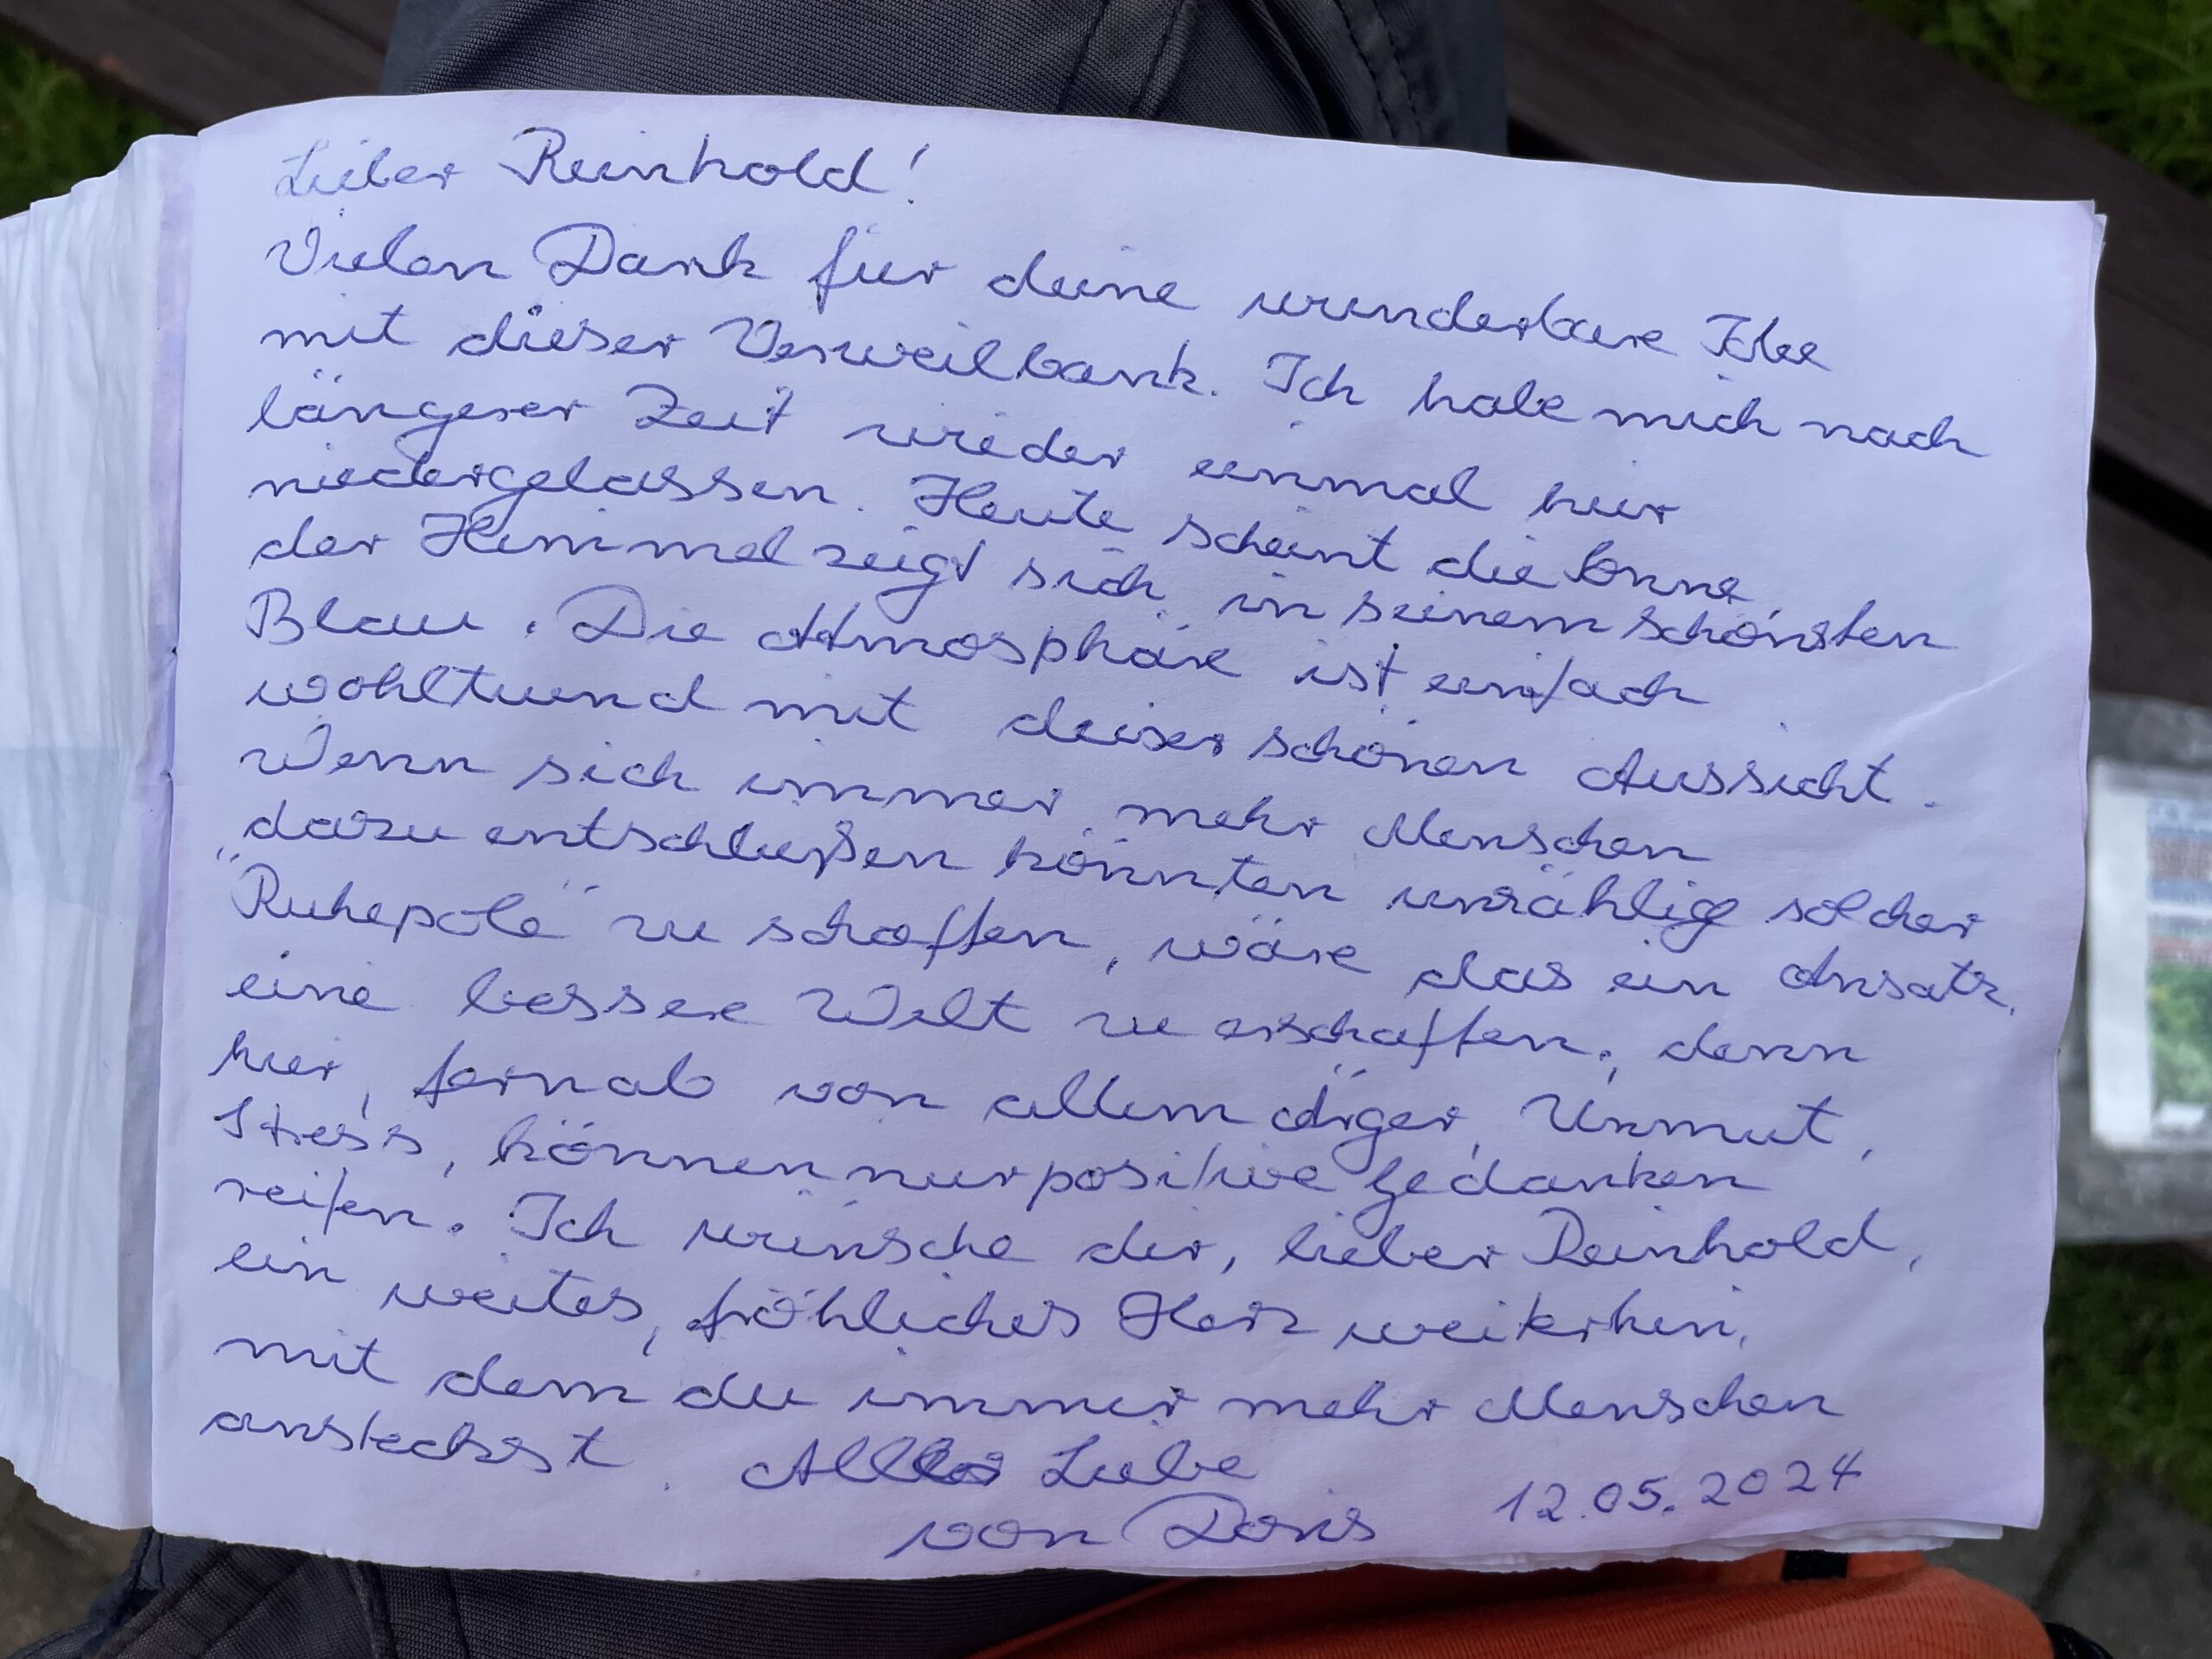 Lieber Reinhold!
Vielen Dank für deine wunderbare Idee
mit dieser Verweilbank. Ich habe mich nach
längerer Zeit wieder einmal hier
niedergelassen. Heute scheint die Sonne,
der Himmel zeigt sich in seinem schönsten
Blau. Die Atmosphäre ist einfach
wohltuend mit dieser schönen Aussicht.
Wenn sich immer mehr Menschen
dazu entschließen könnten unzählig solcher
"Ruhepole" zu schaffen, wäre das ein Ansatz,
eine bessere Welt zu erschaffen, denn
hier, fernab von allem Ärger, Unmut,
Stress, können nur positive Gedanken
reifen. Ich wünsche dir, lieber Reinhold,
ein weites, fröhliches Herz weiterhin,
mit dem du immer mehr Menschen
ansteckst. Alles Liebe
von Doris 12.05.2024